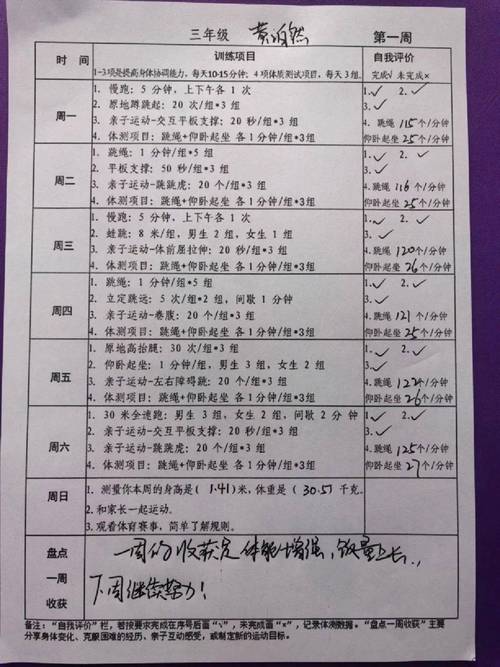 三年级 黄 然 第一周
时 间 训练项目 自我评价
1-3项是提高身体协调能力，每天10-15分钟；4项体质测试项目，每天3组。 完成√ 未完成×
周一
1. 慢跑：5 分钟，上下午各 1 次 1.✓ 2.✓
2. 原地蹲跳起：20 次/组*3 组 3.✓
3. 亲子运动-交互平板支撑：20 秒/组*3 组 4. 跳绳 115个/分钟
4. 体测项目：跳绳+仰卧起坐 各 1 分钟/组*3组 仰卧起坐 25个/分钟
周二
1. 跳绳：1 分钟/组*5 组 1.✓ 2.✓
2. 平板支撑：50 秒/组*3 组 3.✓
3. 亲子运动-跳跳虎：20 个/组*3 组 4. 跳绳 116 个/分钟
4. 体测项目：跳绳+仰卧起坐 各 1 分钟/组*3组 仰卧起坐 25个/分钟
周三
1. 慢跑：5 分钟，上下午各 1 次 1.✓ 2.✓
2. 蛙跳：8 米/组，男生 2 组，女生 1 组 3.✓
3. 亲子运动-体前屈拉伸：20 秒/组*3 组 4. 跳绳 120个/分钟
4. 体测项目：跳绳+仰卧起坐 各 1 分钟/组*3组 仰卧起坐 26个/分钟
周四
1. 跳绳：1 分钟/组*5 组 1.✓ 2.✓
2. 立定跳远：5 次/组*2 组，间歇 1 分钟 3.✓
3. 亲子运动-卷腹：20 个/组*3 组 4. 跳绳 121个/分钟
4. 体测项目：跳绳+仰卧起坐 各 1 分钟/组*3组 仰卧起坐 25个/分钟
周五
1. 原地高抬腿：30 次/组*3 组 1.✓ 2.✓
2. 仰卧起坐：1 分钟/组，男生 3 组，女生 2 组 3.✓
3. 亲子运动-左右障碍跳：20 个/组*3 组 4. 跳绳 122个/分钟
4. 体测项目：跳绳+仰卧起坐 各 1 分钟/组*3组 仰卧起坐 26个/分钟
周六
1. 30 米全速跑：男生 3 组，女生 2 组，间歇 2 分 钟 1.✓ 2.✓
2. 亲子运动-交互平板支撑：20 秒/组*3 组 3.✓
3. 亲子运动-跳跳虎：20 个/组*3 组 4. 跳绳 125个/分钟
4. 体测项目：跳绳+仰卧起坐 各 1 分钟/组*3组 仰卧起坐 27个/分钟
周日
1. 测量你本周的身高是（ 1.41 ）米，体重是（ 30.57 千克。
2. 和家长一起运动。
3. 观看体育赛事，简单了解规则。
盘点 一周的收获是体能增强，饭量上长..
一周 下周继续努力！
收获
备注：“自我评价”栏，若按要求完成在序号后画“√”，未完成画“×”，记录体测数据。“盘点一周收获”主要
分享身体变化、克服困难的经历、亲子互动感受，或制定新的运动目标。